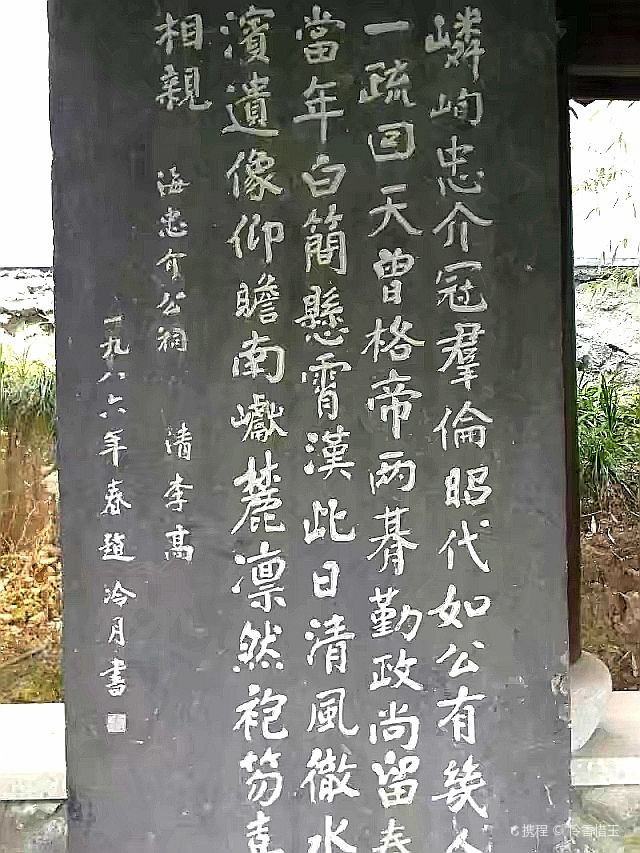 嶙峋忠介冠羣倫昭代如公有幾人
一疏回天曾格帝兩朞勤政尚留春
當年白簡懸霄漢此日清風徹水
濱遺像仰瞻南巘麓凜然袍笏喜
相親 海忠介公祠 清李高
一九八六年春趙冷月書
携程 © 怜香惜玉